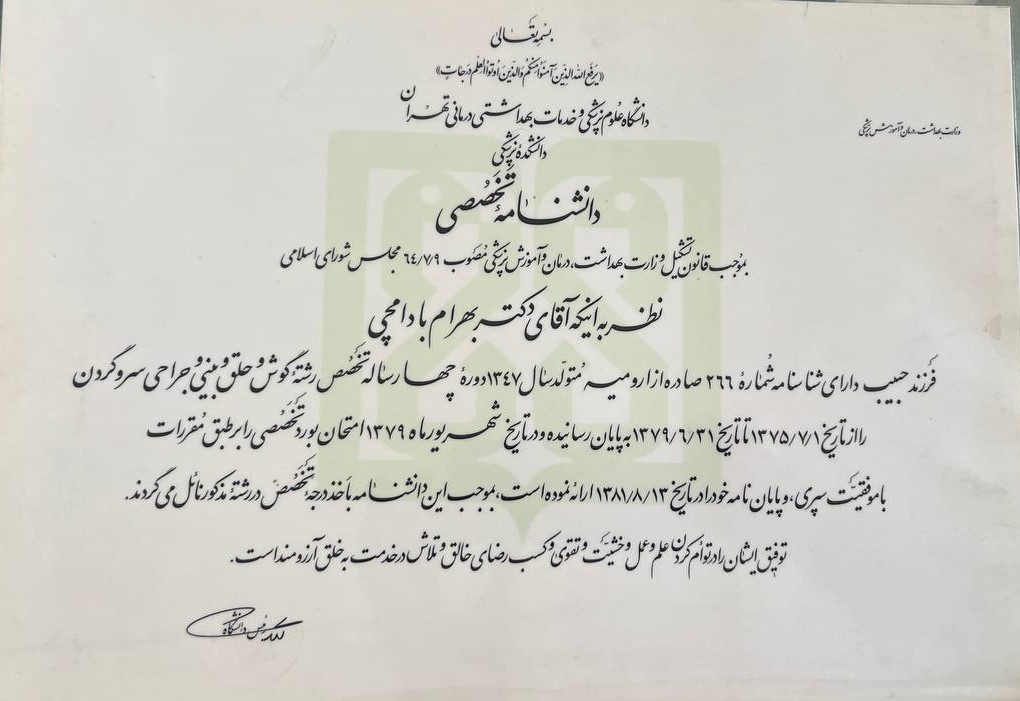 بسمه تعالی
«یرفع الله الذین آمنوا منکم والذین اوتوا العلم درجات»
دانشگاه علوم پزشکی و خدمات بهداشتی درمانی تهران
وزارت بهداشت، درمان و آموزش پزشکی
دانشکده پزشکی
دانشنامهٔ تخصصی
بموجب قانون تشکیل وزارت بهداشت، درمان و آموزش پزشکی مصوب ۶۴/۷/۹ مجلس شورای اسلامی
نظر به اینکه آقای دکتر بهرام بادامچی
فرزند حبیب دارای شناسنامه شمارهٔ ۲۶۶ صادره از ارومیه متولد سال ۱۳۴۷ دورهٔ چهارساله تخصص رشتهٔ گوش و حلق و بینی و جراحی سر و گردن
را از تاریخ ۱۳۷۵/۷/۱ تا تاریخ ۱۳۷۹/۶/۳۱ به پایان رسانیده و در تاریخ شهریور ماه ۱۳۷۹ امتحان بورد تخصصی را بر طبق مقررات
با موفقیت سپری، و پایان نامه خود را در تاریخ ۱۳۸۱/۸/۱۳ ارائه نموده است، بموجب این دانشنامه باخذ درجهٔ تخصص در رشتهٔ مذکور نائل می گردند.
توفیق ایشان را در توأم کردن علم و عمل و خشیت و تقوی و کسب رضای خالق و تلاش در خدمت به خلق آرزومند است.
رئیس دانشگاه